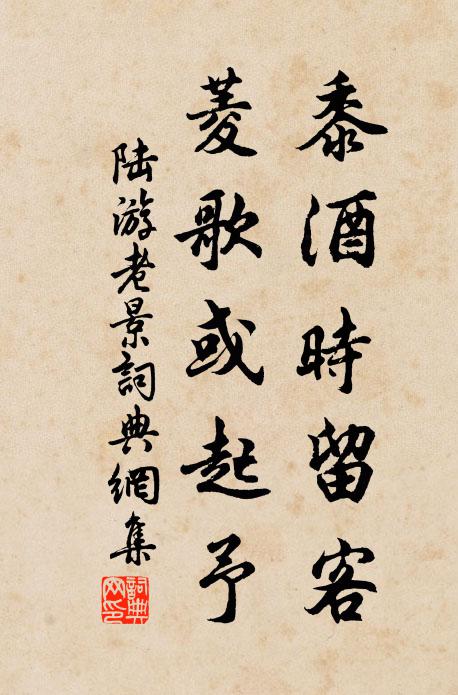 黍酒時留客
菱歌或起予
陆游老景詞典網集
詞典网印